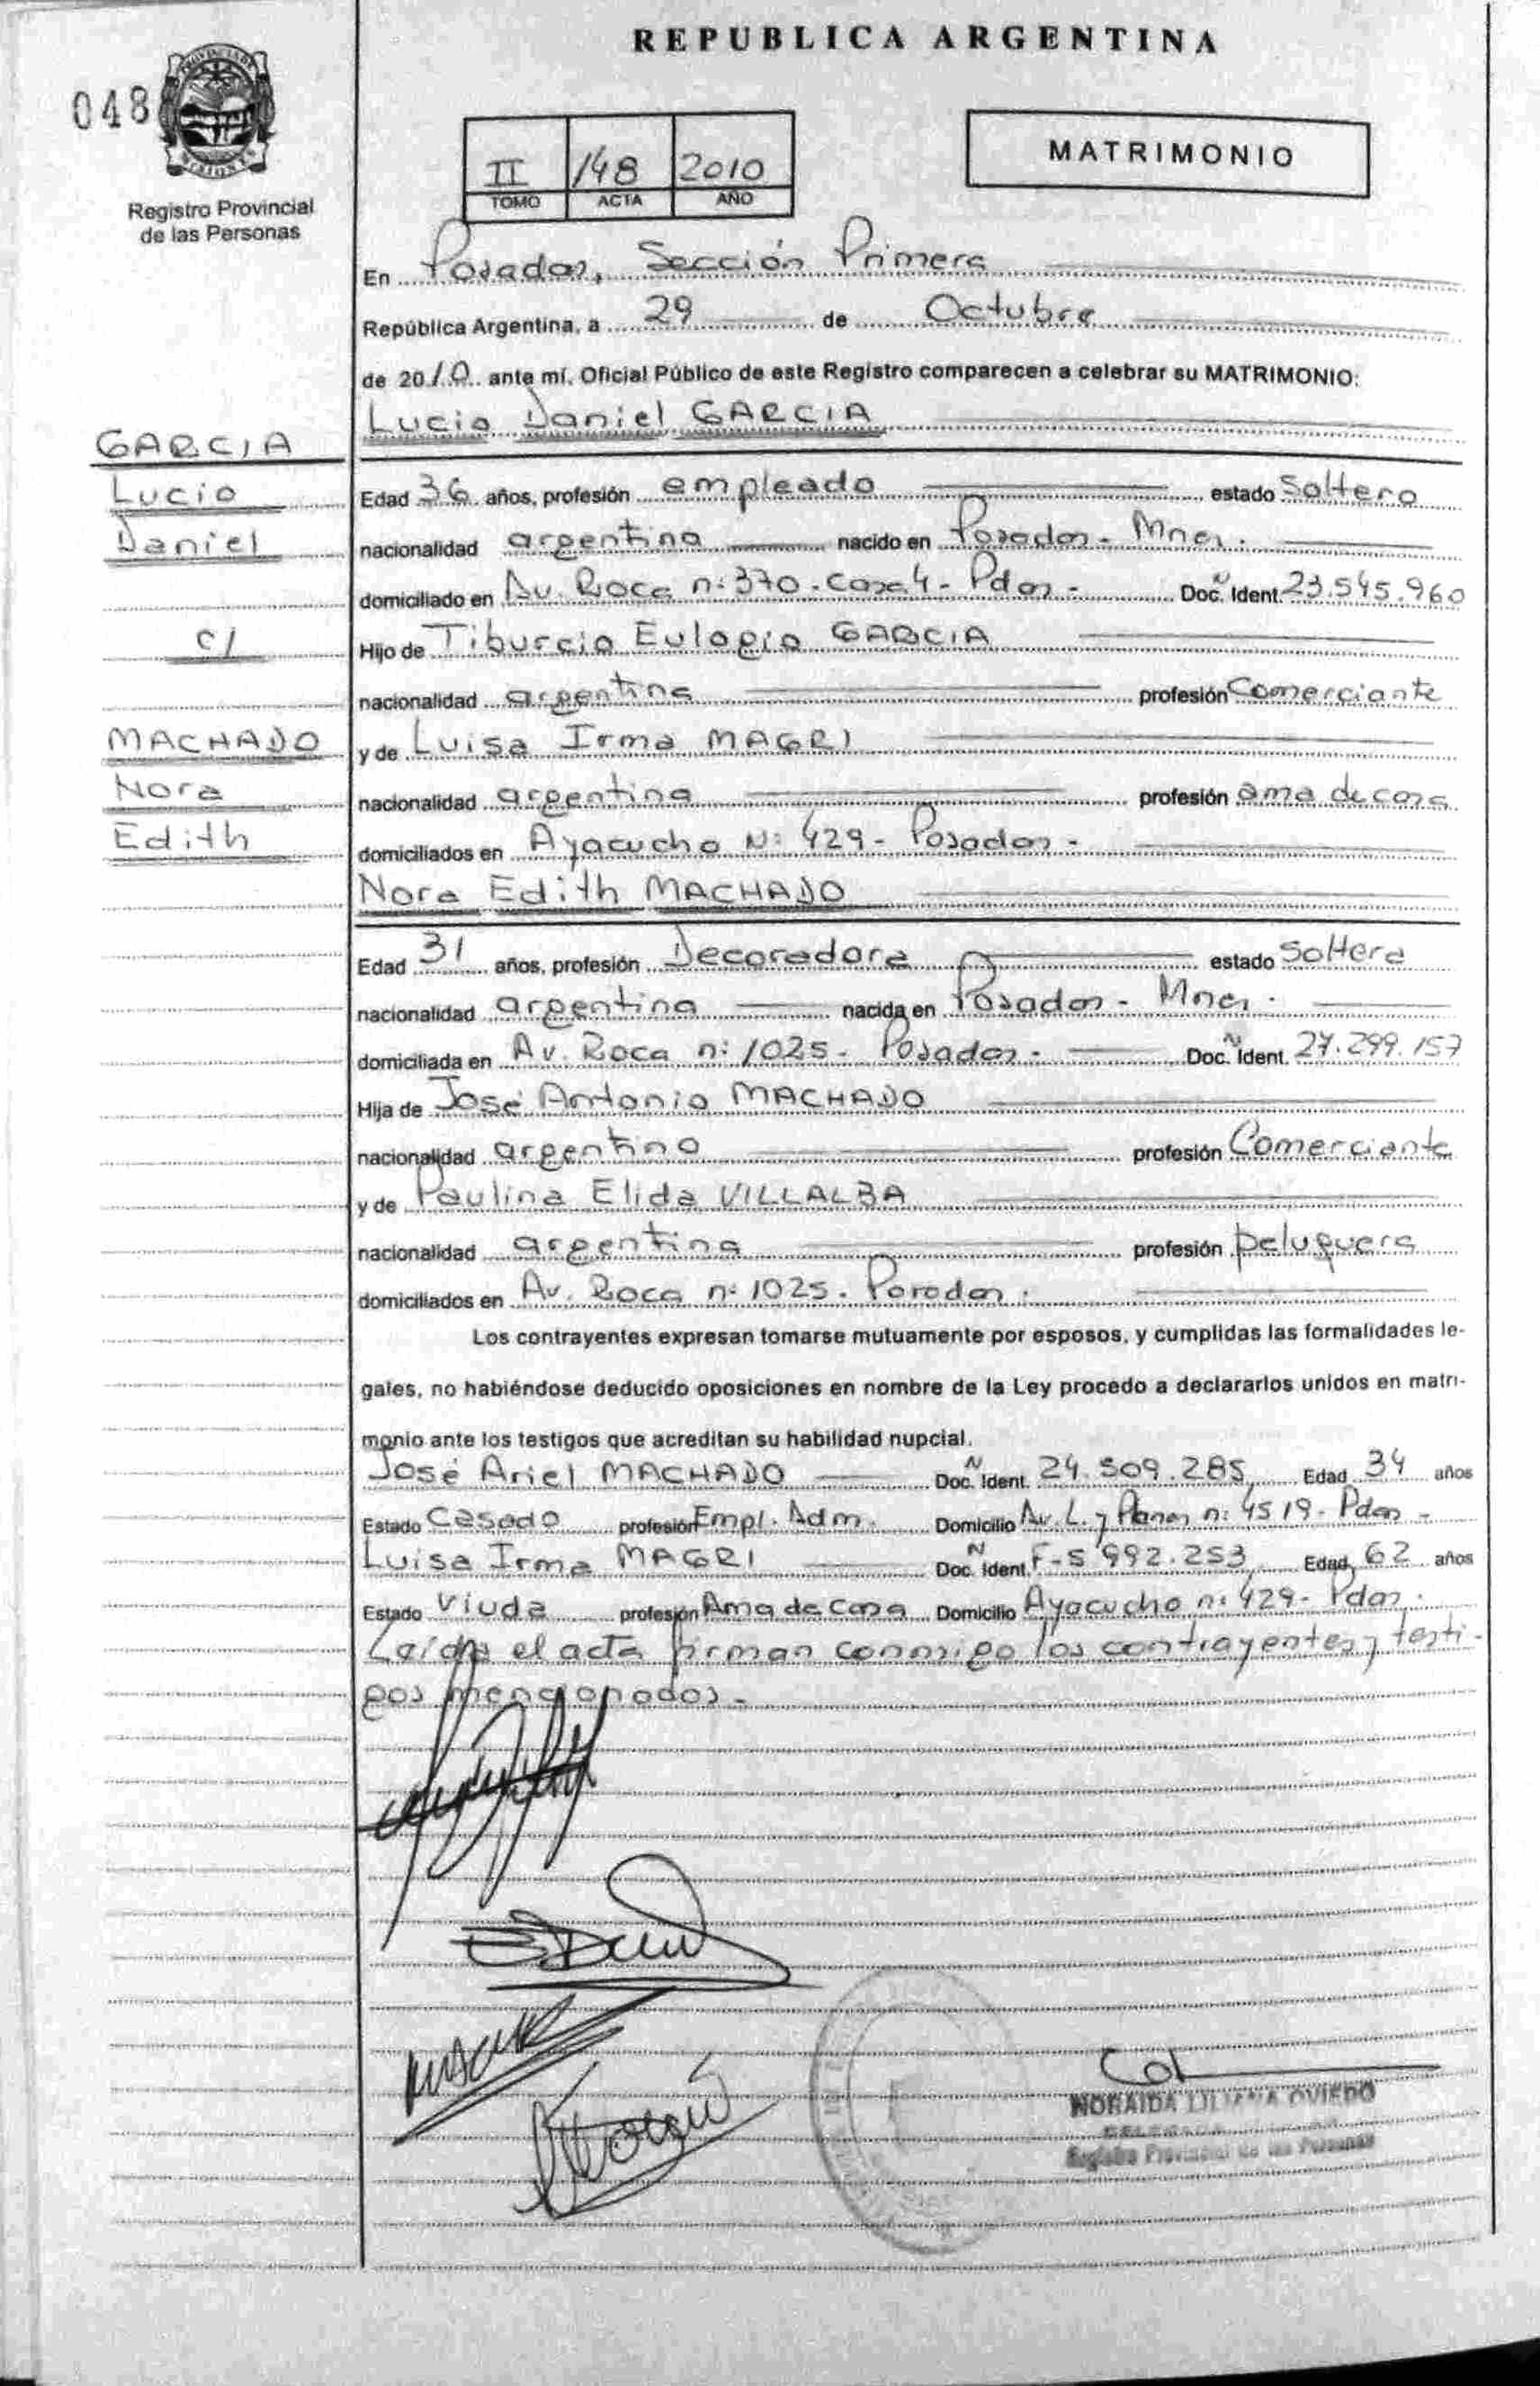 REPUBLICA ARGENTINA
048
PROVINCIA DE
MISIONES
Registro Provincial
de las Personas
II 148 2010
TOMO ACTA AÑO
MATRIMONIO
En Posadas, Sección Primera
República Argentina, a 29 de Octubre
de 2010 ante mí, Oficial Público de este Registro comparecen a celebrar su MATRIMONIO:
Lucio Daniel GARCIA
GARCIA
Lucio
Daniel
c/
MACHADO
Nora
Edith
Edad 36 años, profesión empleado estado soltero
nacionalidad argentina nacido en Posadas - Mnes.
domiciliado en Av. Roca n: 370 - Casa 4 - Pdas - Doc. N Ident. 23.545.960
Hijo de Tiburcio Eulogio GARCIA
nacionalidad argentina profesión Comerciante
y de Luisa Irma MAGRI
nacionalidad argentina profesión ama de casa
domiciliados en Ayacucho N: 429 - Posadas -
Nora Edith MACHADO
Edad 31 años, profesión Decoradora estado soltera
nacionalidad argentina nacida en Posadas - Mnes.
domiciliada en Av. Roca n: 1025 - Posadas - Doc. N Ident. 27.299.157
Hija de José Antonio MACHADO
nacionalidad argentino profesión Comerciante
y de Paulina Elida VILLALBA
nacionalidad argentina profesión peluquera
domiciliados en Av. Roca n: 1025 - Posadas.
Los contrayentes expresan tomarse mutuamente por esposos, y cumplidas las formalidades le-
gales, no habiéndose deducido oposiciones en nombre de la Ley procedo a declararlos unidos en matri-
monio ante los testigos que acreditan su habilidad nupcial.
José Ariel MACHADO Doc. N Ident. 24.509.285 Edad 34 años
Estado Casado profesión Empl. Adm. Domicilio Av. L. y Planes n: 4519 - Pdas -
Luisa Irma MAGRI Doc. N Ident. F-5 992.253 Edad 62 años
Estado Viuda profesión Ama de Casa Domicilio Ayacucho n: 429 - Pdas.
Leída el acta firman conmigo los contrayentes y testi-
gos mencionados -
NORAIDA LILIANA OVIEDO
Registro Provincial de las Personas